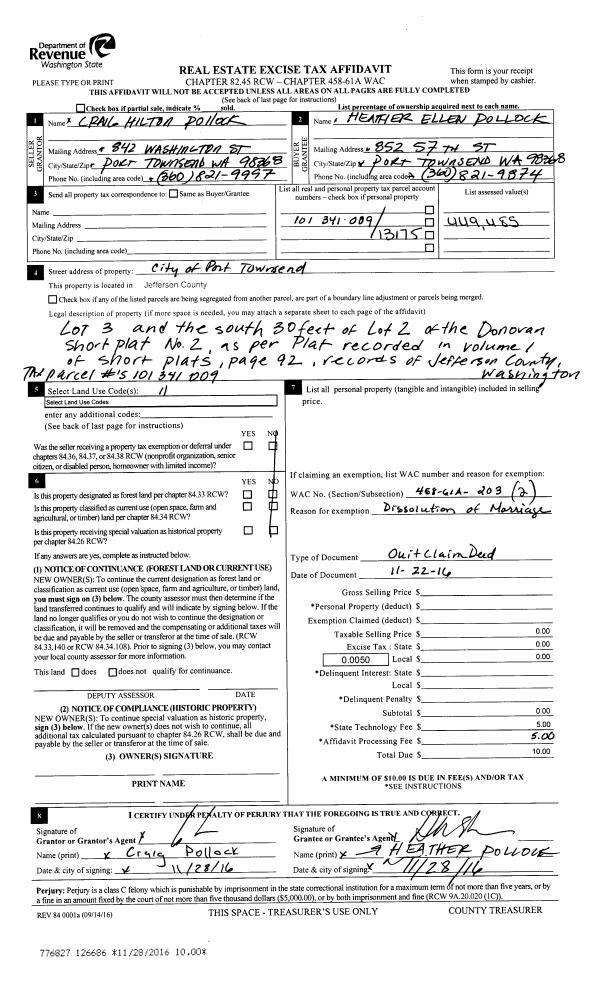 Department of
Revenue
Washington State
PLEASE TYPE OR PRINT
REAL ESTATE EXCISE TAX AFFIDAVIT
CHAPTER 82.45 RCW – CHAPTER 458-61A WAC
This form is your receipt
when stamped by cashier.
THIS AFFIDAVIT WILL NOT BE ACCEPTED UNLESS ALL AREAS ON ALL PAGES ARE FULLY COMPLETED
(See back of last page for instructions)
Check box if partial sale, indicate % sold.
List percentage of ownership acquired next to each name.
1 Name CRAIG HILTON POLLOCK
SELLER GRANTOR
Mailing Address 842 WASHINGTON ST
City/State/Zip PORT TOWNSEND WA 98368
Phone No. (including area code) (360) 821-9997
2 Name HEATHER ELLEN POLLOCK
BUYER GRANTEE
Mailing Address 852 57TH ST
City/State/Zip PORT TOWNSEND WA 98368
Phone No. (including area code) (360) 821-9874
3 Send all property tax correspondence to: Same as Buyer/Grantee
Name
Mailing Address
City/State/Zip
Phone No. (including area code)
List all real and personal property tax parcel account
numbers – check box if personal property
101 341 009
/13175
List assessed value(s)
449,485
4 Street address of property: City of Port Townsend
This property is located in Jefferson County
Check box if any of the listed parcels are being segregated from another parcel, are part of a boundary line adjustment or parcels being merged.
Legal description of property (if more space is needed, you may attach a separate sheet to each page of the affidavit)
Lot 3 and the south 30 feet of Lot 2 of the Donovan
Short plat No. 2, as per Plat recorded in volume 1
of short plats, page 92, records of Jefferson County,
Washington
Tax parcel #'s 101 341 009
5 Select Land Use Code(s): 11
Select Land Use Codes
enter any additional codes:
(See back of last page for instructions)
YES NO
Was the seller receiving a property tax exemption or deferral under
chapters 84.36, 84.37, or 84.38 RCW (nonprofit organization, senior
citizen, or disabled person, homeowner with limited income)?
6 YES NO
Is this property designated as forest land per chapter 84.33 RCW?
Is this property classified as current use (open space, farm and
agricultural, or timber) land per chapter 84.34 RCW?
Is this property receiving special valuation as historical property
per chapter 84.26 RCW?
If any answers are yes, complete as instructed below.
(1) NOTICE OF CONTINUANCE (FOREST LAND OR CURRENT USE)
NEW OWNER(S): To continue the current designation as forest land or
classification as current use (open space, farm and agriculture, or timber) land,
you must sign on (3) below. The county assessor must then determine if the
land transferred continues to qualify and will indicate by signing below. If the
land no longer qualifies or you do not wish to continue the designation or
classification, it will be removed and the compensating or additional taxes will
be due and payable by the seller or transferor at the time of sale. (RCW
84.33.140 or RCW 84.34.108). Prior to signing (3) below, you may contact
your local county assessor for more information.
This land does does not qualify for continuance.
DEPUTY ASSESSOR DATE
(2) NOTICE OF COMPLIANCE (HISTORIC PROPERTY)
NEW OWNER(S): To continue special valuation as historic property,
sign (3) below. If the new owner(s) does not wish to continue, all
additional tax calculated pursuant to chapter 84.26 RCW, shall be due and
payable by the seller or transferor at the time of sale.
(3) OWNER(S) SIGNATURE
PRINT NAME
7 List all personal property (tangible and intangible) included in selling
price.
If claiming an exemption, list WAC number and reason for exemption:
WAC No. (Section/Subsection) 458-61A-203 (2)
Reason for exemption Dissolution of Marriage
Type of Document Quit Claim Deed
Date of Document 11-22-16
Gross Selling Price $
*Personal Property (deduct) $
Exemption Claimed (deduct) $
Taxable Selling Price $ 0.00
Excise Tax : State $ 0.00
0.0050 Local $ 0.00
*Delinquent Interest: State $
Local $
*Delinquent Penalty $
Subtotal $ 0.00
*State Technology Fee $ 5.00
*Affidavit Processing Fee $ 5.00
Total Due $ 10.00
A MINIMUM OF $10.00 IS DUE IN FEE(S) AND/OR TAX
*SEE INSTRUCTIONS
8 I CERTIFY UNDER PENALTY OF PERJURY THAT THE FOREGOING IS TRUE AND CORRECT.
Signature of
Grantor or Grantor's Agent
Name (print) Craig Pollock
Date & city of signing: 11/28/16
Signature of
Grantee or Grantee's Agent
Name (print) HEATHER POLLOCK
Date & city of signing: 11/28/16
Perjury: Perjury is a class C felony which is punishable by imprisonment in the state correctional institution for a maximum term of not more than five years, or by
a fine in an amount fixed by the court of not more than five thousand dollars ($5,000.00), or by both imprisonment and fine (RCW 9A.20.020 (1C)).
REV 84 0001a (09/14/16)
THIS SPACE - TREASURER'S USE ONLY
COUNTY TREASURER
776827 126686 *11/28/2016 10.00*